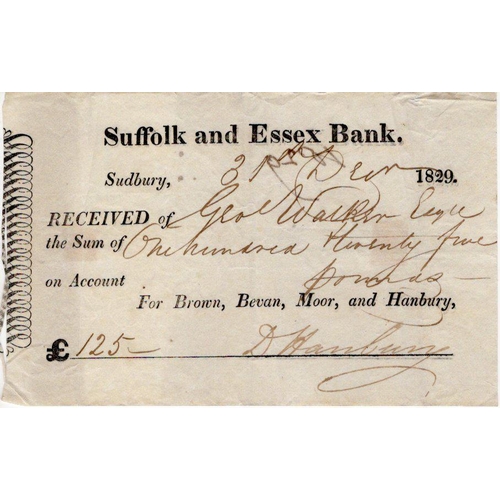 Suffolk and Essex Bank.
Sudbury, 31st Decr 1829.
RECEIVED of Geo Walker Esqre
the Sum of One hundred twenty five
on Account pounds —
For Brown, Bevan, Moor, and Hanbury,
£ 125 — D Hanbury